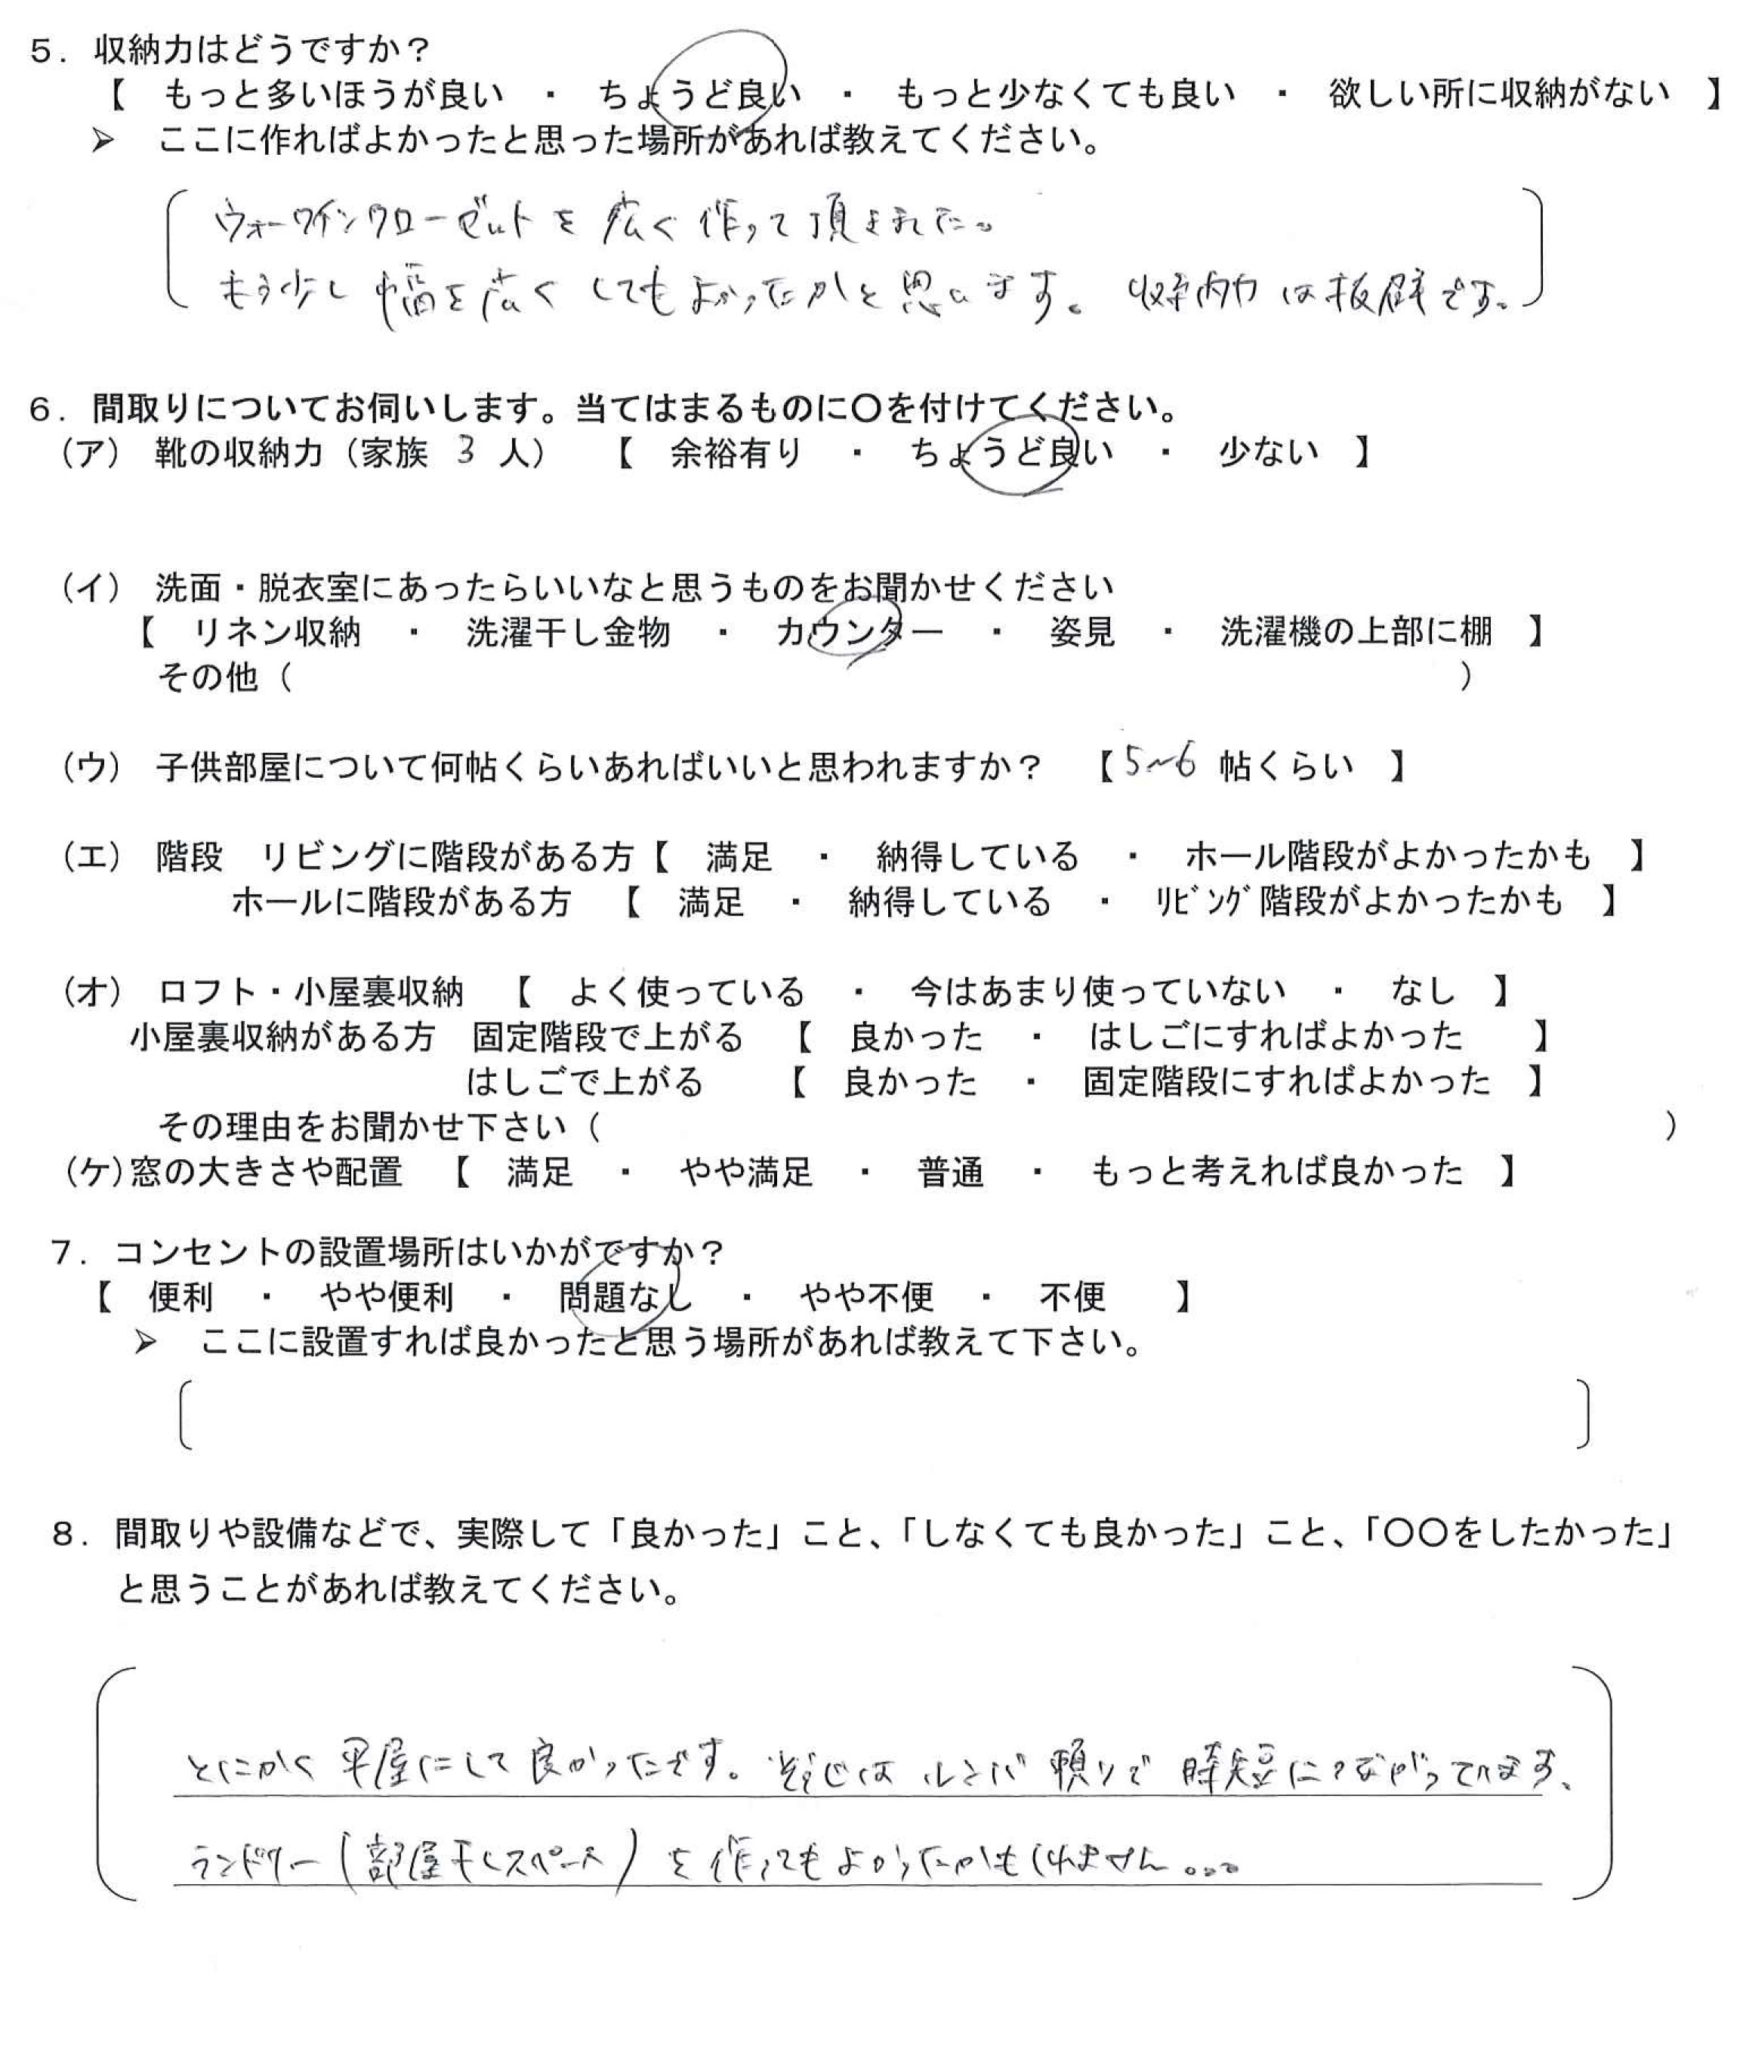 ５．収納力はどうですか？
【　もっと多いほうが良い　・　ちょうど良い　・　もっと少なくても良い　・　欲しい所に収納がない　】
➢　ここに作ればよかったと思った場所があれば教えてください。
ウォークインクローゼットを広く作って頂きました。
もう少し幅を広くしてもよかったかと思います。収納力は抜群です。
６．間取りについてお伺いします。当てはまるものに〇を付けてください。
（ア）　靴の収納力（家族　3　人）　【　余裕有り　・　ちょうど良い　・　少ない　】
（イ）　洗面・脱衣室にあったらいいなと思うものをお聞かせください
【　リネン収納　・　洗濯干し金物　・　カウンター　・　姿見　・　洗濯機の上部に棚　】
その他（　　　　　　　　　　　　　　　　）
（ウ）　子供部屋について何帖くらいあればいいと思われますか？　【5~6 帖くらい　】
（エ）　階段　リビングに階段がある方【　満足　・　納得している　・　ホール階段がよかったかも　】
ホールに階段がある方　【　満足　・　納得している　・　ﾘﾋﾞﾝｸﾞ階段がよかったかも　】
（オ）　ロフト・小屋裏収納　【　よく使っている　・　今はあまり使っていない　・　なし　】
小屋裏収納がある方　固定階段で上がる　【　良かった　・　はしごにすればよかった　　】
はしごで上がる　　【　良かった　・　固定階段にすればよかった　】
その理由をお聞かせ下さい（　　　　　　　　　　　　　　　　）
（ケ）窓の大きさや配置　【　満足　・　やや満足　・　普通　・　もっと考えれば良かった　】
７．コンセントの設置場所はいかがですか？
【　便利　・　やや便利　・　問題なし　・　やや不便　・　不便　　】
➢　ここに設置すれば良かったと思う場所があれば教えて下さい。
８．間取りや設備などで、実際して「良かった」こと、「しなくても良かった」こと、「〇〇をしたかった」
と思うことがあれば教えてください。
とにかく平屋にして良かったです。そうじはルンバ頼りで時短につながってます、
ランドリー（部屋干しスペース）を作ってもよかったかもしれません。。。